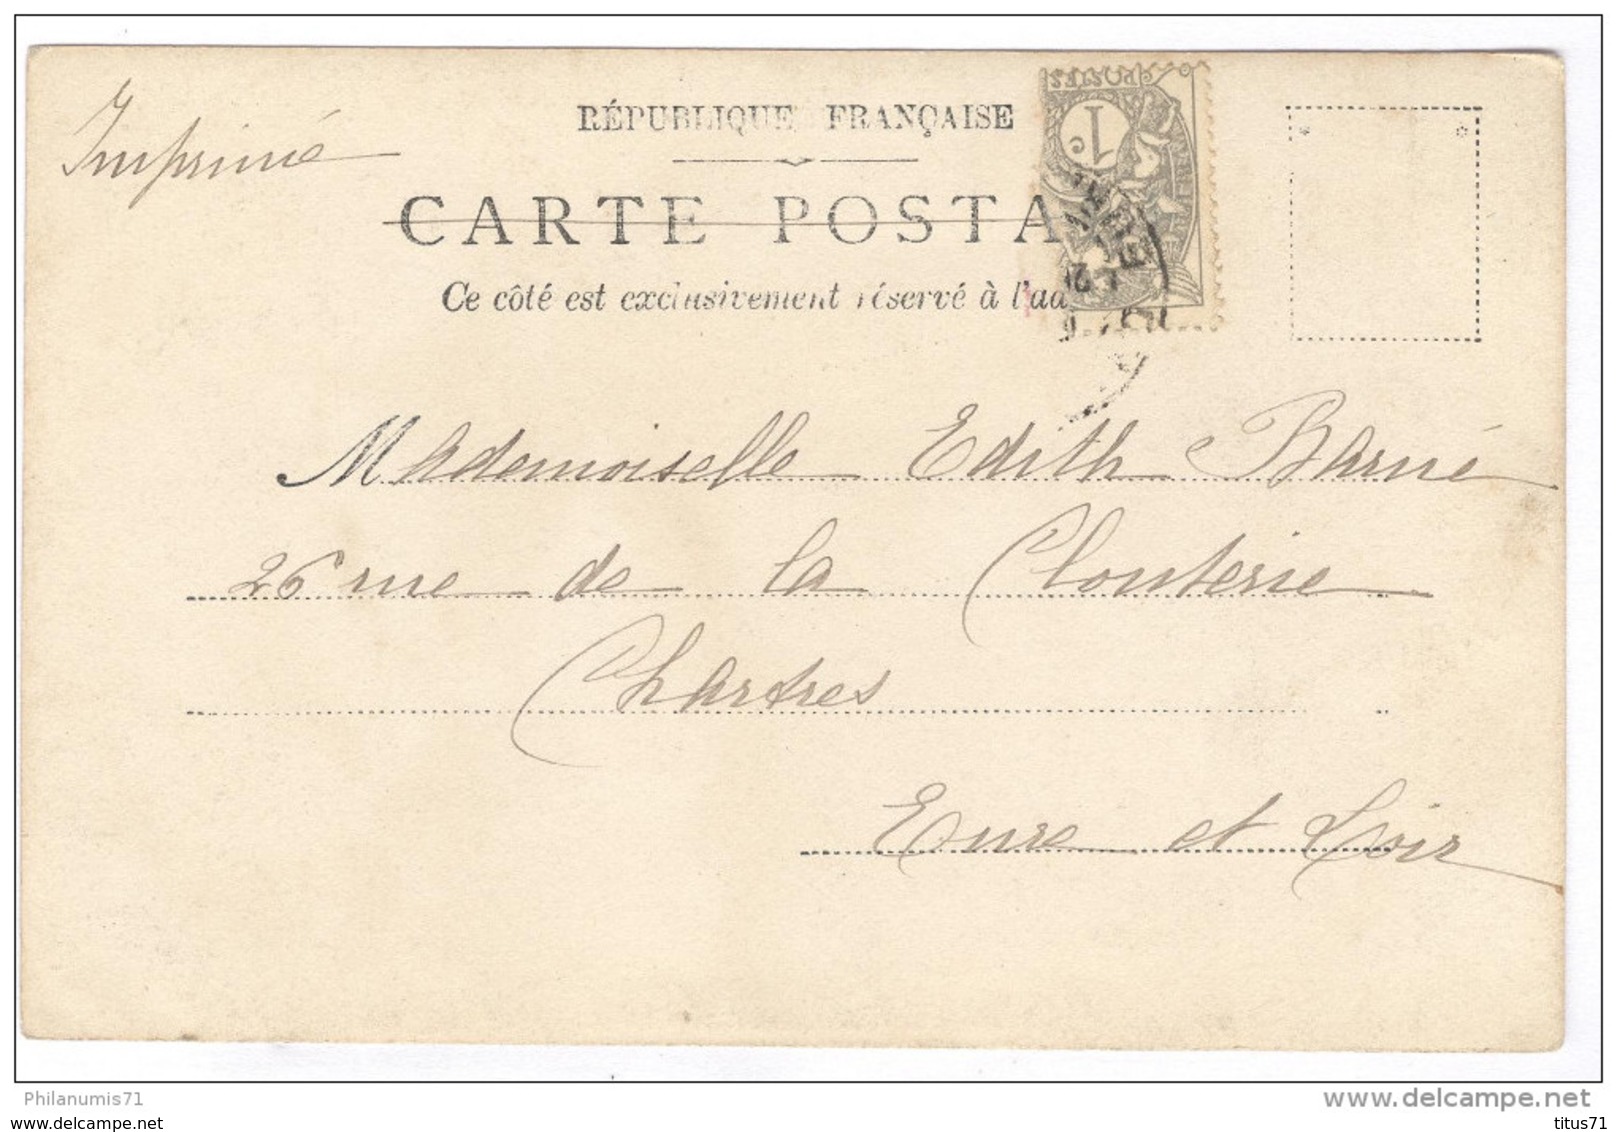 Imprimé
RÉPUBLIQUE FRANÇAISE
CARTE POSTA
Ce côté est exclusivement réservé à l'ad
POSTES
1c
Mademoiselle Edith Barné
26 rue de la Clouterie
Chartres
Eure et Loir
Philanumis71
www.delcampe.net
posted on www.delcampe.net
titus71